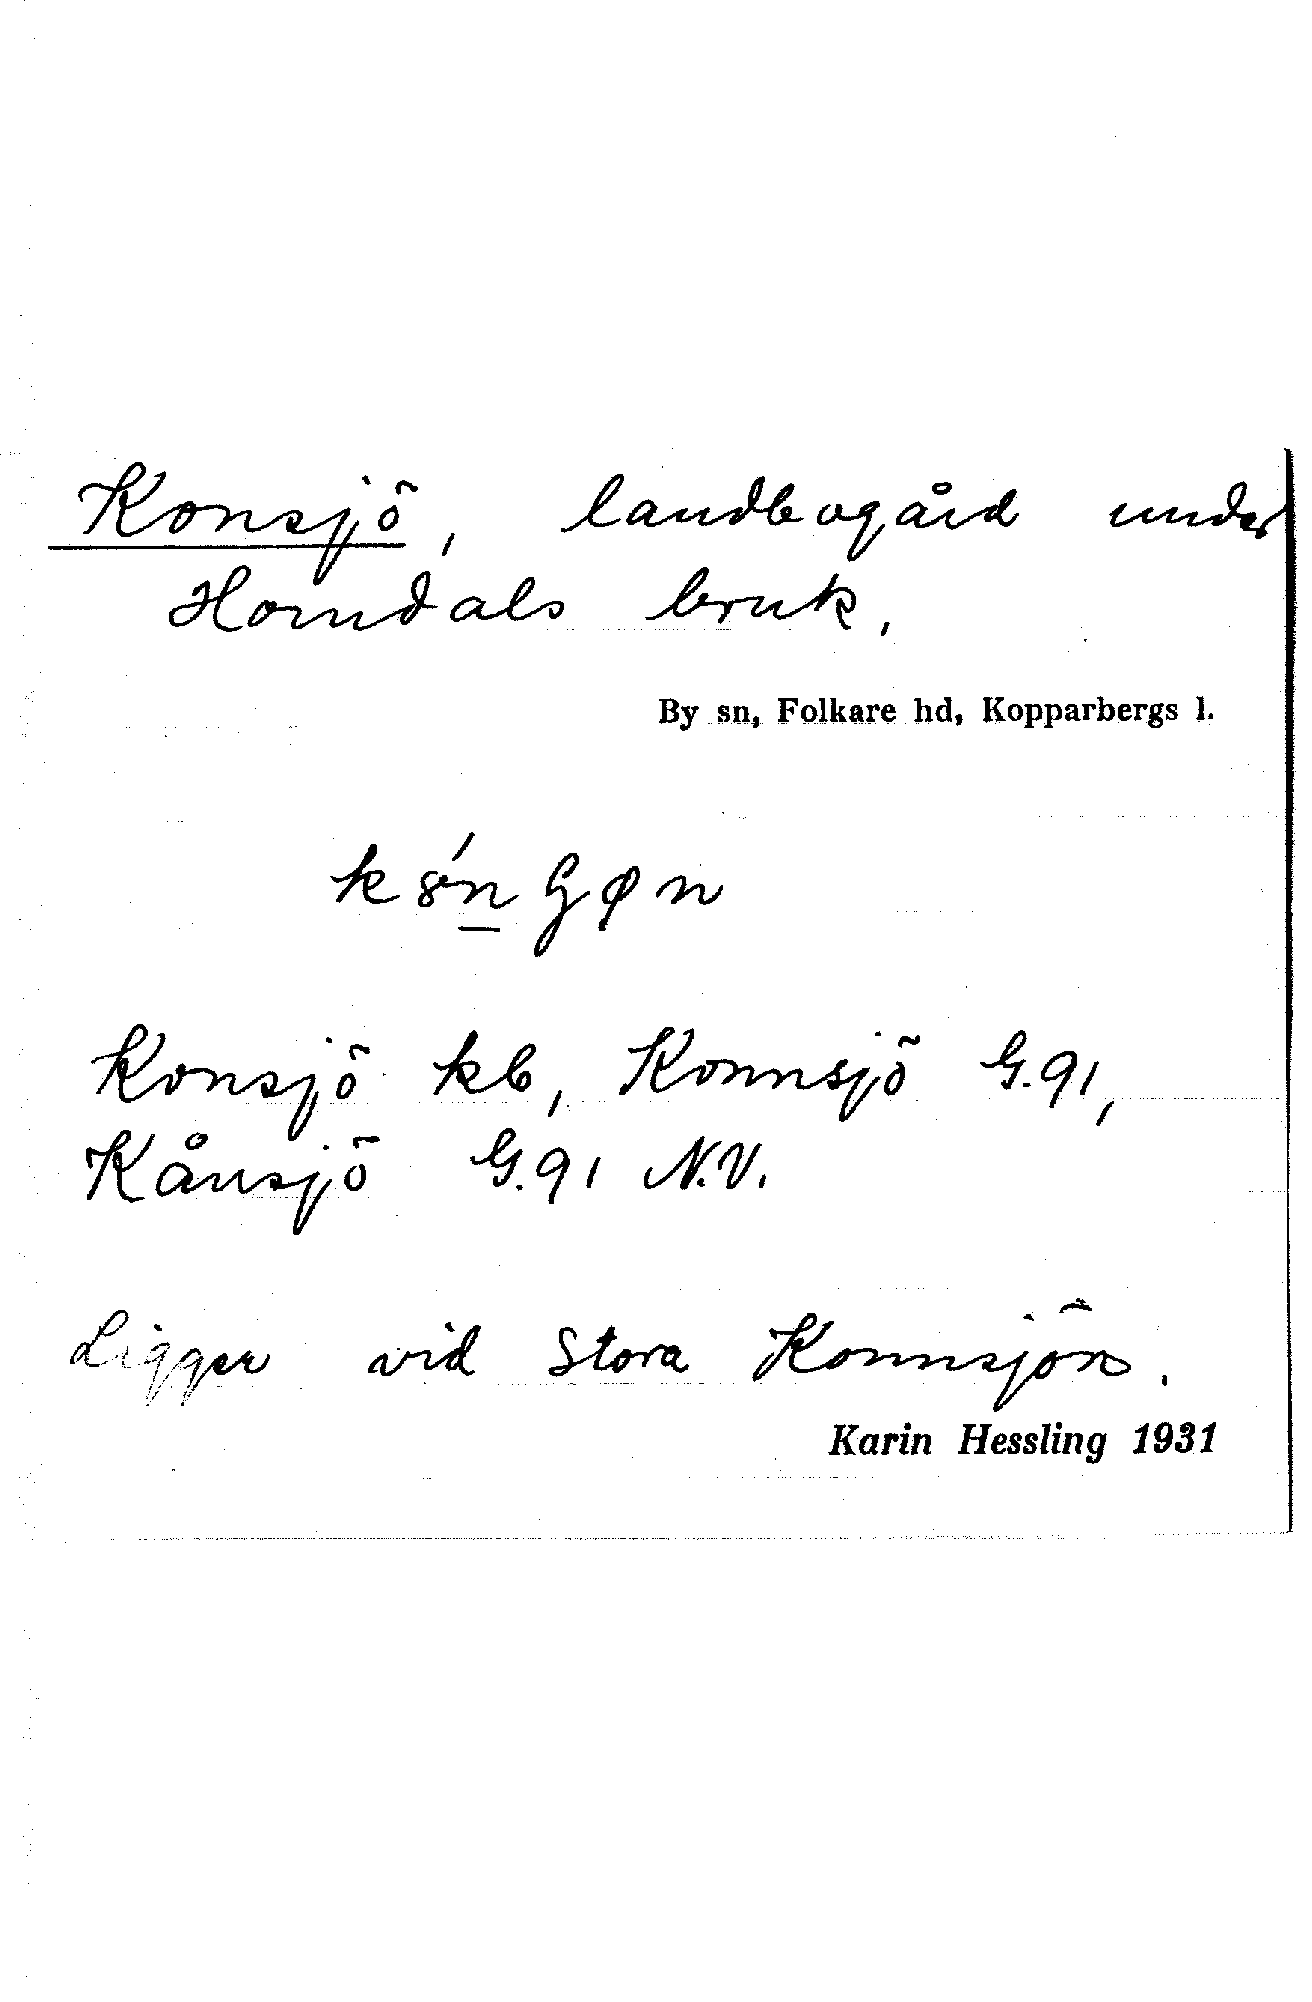 Konsjö, landbogård under
Horndals bruk,
By sn, Folkare hd, Kopparbergs l.
Konsjö kb, Konnsjö G.91,
Kånsjö G.91 N.V.
Ligger vid Stora Konnsjön.
Karin Hessling 1931